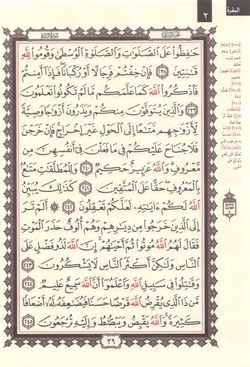 البقرة
٢
حَٰفِظُوا۟ عَلَى ٱلصَّلَوَٰتِ وَٱلصَّلَوٰةِ ٱلْوُسْطَىٰ وَقُومُوا۟ لِلَّهِ
قَٰنِتِينَ ﴿٢٣٨﴾ فَإِنْ خِفْتُمْ فَرِجَالًا أَوْ رُكْبَانًا فَإِذَآ أَمِنتُمْ
فَٱذْكُرُوا۟ ٱللَّهَ كَمَا عَلَّمَكُم مَّا لَمْ تَكُونُوا۟ تَعْلَمُونَ
﴿٢٣٩﴾ وَٱلَّذِينَ يُتَوَفَّوْنَ مِنكُمْ وَيَذَرُونَ أَزْوَٰجًا وَصِيَّةً
لِّأَزْوَٰجِهِم مَّتَٰعًا إِلَى ٱلْحَوْلِ غَيْرَ إِخْرَاجٍ فَإِنْ خَرَجْنَ
فَلَا جُنَاحَ عَلَيْكُمْ فِى مَا فَعَلْنَ فِىٓ أَنفُسِهِنَّ مِن
مَّعْرُوفٍ وَٱللَّهُ عَزِيزٌ حَكِيمٌ ﴿٢٤٠﴾ وَلِلْمُطَلَّقَٰتِ مَتَٰعٌۢ
بِٱلْمَعْرُوفِ حَقًّا عَلَى ٱلْمُتَّقِينَ ﴿٢٤١﴾ كَذَٰلِكَ يُبَيِّنُ
ٱللَّهُ لَكُمْ ءَايَٰتِهِۦ لَعَلَّكُمْ تَعْقِلُونَ ﴿٢٤٢﴾ أَلَمْ تَرَ
إِلَى ٱلَّذِينَ خَرَجُوا۟ مِن دِيَٰرِهِمْ وَهُمْ أُلُوفٌ حَذَرَ ٱلْمَوْتِ
فَقَالَ لَهُمُ ٱللَّهُ مُوتُوا۟ ثُمَّ أَحْيَٰهُمْ إِنَّ ٱللَّهَ لَذُو فَضْلٍ عَلَى
ٱلنَّاسِ وَلَٰكِنَّ أَكْثَرَ ٱلنَّاسِ لَا يَشْكُرُونَ ﴿٢٤٣﴾
وَقَٰتِلُوا۟ فِى سَبِيلِ ٱللَّهِ وَٱعْلَمُوٓا۟ أَنَّ ٱللَّهَ سَمِيعٌ عَلِيمٌ ﴿٢٤٤﴾
مَّن ذَا ٱلَّذِى يُقْرِضُ ٱللَّهَ قَرْضًا حَسَنًا فَيُضَٰعِفَهُۥ لَهُۥٓ أَضْعَافًا
كَثِيرَةً وَٱللَّهُ يَقْبِضُ وَيَبْصُۜطُ وَإِلَيْهِ تُرْجَعُونَ ﴿٢٤٥﴾
٣٩